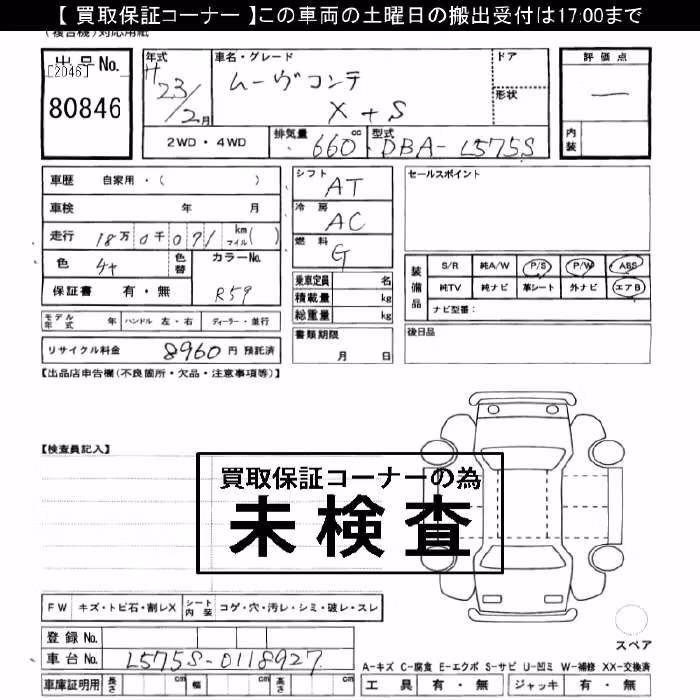 【 買取保証コーナー 】この車両の土曜日の搬出受付は17:00まで
(複合機)対応用紙
出品No.
[2046]
80846
年式
H23/2月
車名・グレード
ムーヴコンテ
X+S
ドア
形状
評価点
—
内装
2WD・4WD
排気量 660 cc
型式 DBA-L575S
車歴 自家用・( )
車検 年 月
走行 18万0千071 km マイル( )
色
色替
カラーNo.
R59
保証書 有・無
モデル年式 年 ハンドル 左・右 ディーラー・並行
リサイクル料金 8960円 預託済
シフト AT
冷房 AC
燃料 G
乗車定員 名
積載量 kg
総重量 kg
書類期限
月 日
セールスポイント
装備品
S/R 純A/W P/S P/W ABS
純TV 純ナビ 革シート 外ナビ エアB
ナビ型番:
後日品
【出品店申告欄(不良箇所・欠品・注意事項等)】
【検査員記入】
買取保証コーナーの為
未検査
FW キズ・トビ石・割レX シート内装 コゲ・穴・汚レ・シミ・破レ・スレ
登録No.
車台No. L575S-0118927
車庫証明用 長さ cm 幅 cm 高さ cm
スペア
A-キズ C-腐食 E-エクボ S-サビ U-凹ミ W-補修 XX-交換済
工具 有・無 ジャッキ 有・無